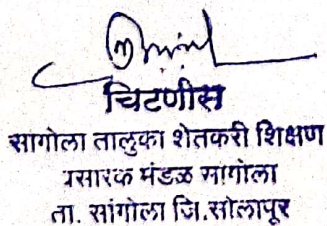 चिटणीस
सागोला तालुका शेतकरी शिक्षण
प्रसारक मंडळ सागोला
ता. सांगोला जि.सोलापूर